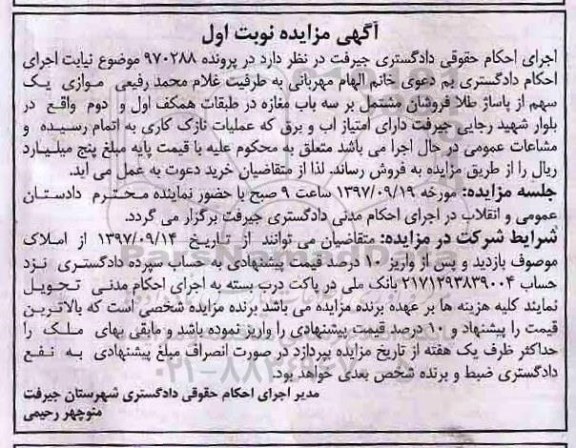 آگهی مزایده نوبت اول
اجرای احکام حقوقی دادگستری جیرفت در نظر دارد در پرونده ۹۷۰۲۸۸ موضوع نیابت اجرای
احکام دادگستری بم دعوی خانم الهام مهربانی به طرفیت غلام محمد رفیعی موازی یک
سهم از پاساژ طلا فروشان مشتمل بر سه باب مغازه در طبقات همکف اول و دوم واقع در
بلوار شهید رجایی جیرفت دارای امتیاز اب و برق که عملیات نازک کاری به اتمام رسیده و
مشاعات عمومی در حال اجرا می باشد متعلق به محکوم علیه با قیمت پایه مبلغ پنج میلیارد
ریال را از طریق مزایده به فروش رساند. لذا از متقاضیان خرید دعوت به عمل می اید.
جلسه مزایده: مورخه ۱۳۹۷/۰۹/۱۹ ساعت ۹ صبح با حضور نماینده محترم دادستان
عمومی و انقلاب در اجرای احکام مدنی دادگستری جیرفت برگزار می گردد.
شرایط شرکت در مزایده: متقاضیان می توانند از تاریخ ۱۳۹۷/۰۹/۱۴ از املاک
موصوف بازدید و پس از واریز ۱۰ درصد قیمت پیشنهادی به حساب سپرده دادگستری نزد
حساب ۲۱۷۱۲۹۳۸۳۹۰۰۴ بانک ملی در پاکت درب بسته به اجرای احکام مدنی تحویل
نمایند کلیه هزینه ها بر عهده برنده مزایده می باشد برنده مزایده شخصی است که بالاترین
قیمت را پیشنهاد و ۱۰ درصد قیمت پیشنهادی را واریز نموده باشد و مابقی بهای ملک را
حداکثر ظرف یک هفته از تاریخ مزایده بپردازد در صورت انصراف مبلغ پیشنهادی به نفع
دادگستری ضبط و برنده شخص بعدی خواهد بود.
مدیر اجرای احکام حقوقی دادگستری شهرستان جیرفت
منوچهر رحیمی